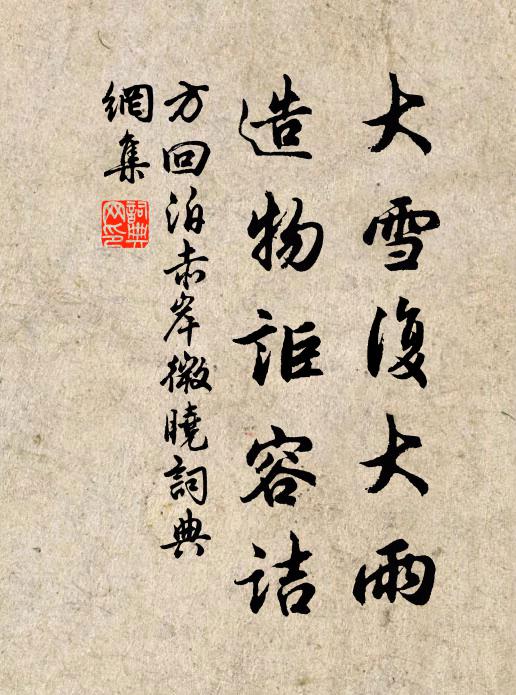 大雪復大雨
造物詎容詰
方回泊赤岸微曉詞典
網集
詞典
网印